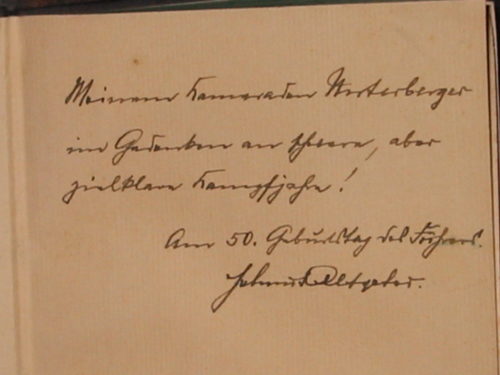 Meinem Kameraden Westerberger
im Gedenken an schwere, aber
zielklare Kampfjahre!
Am 50. Geburtstag des Führers.
Helmut